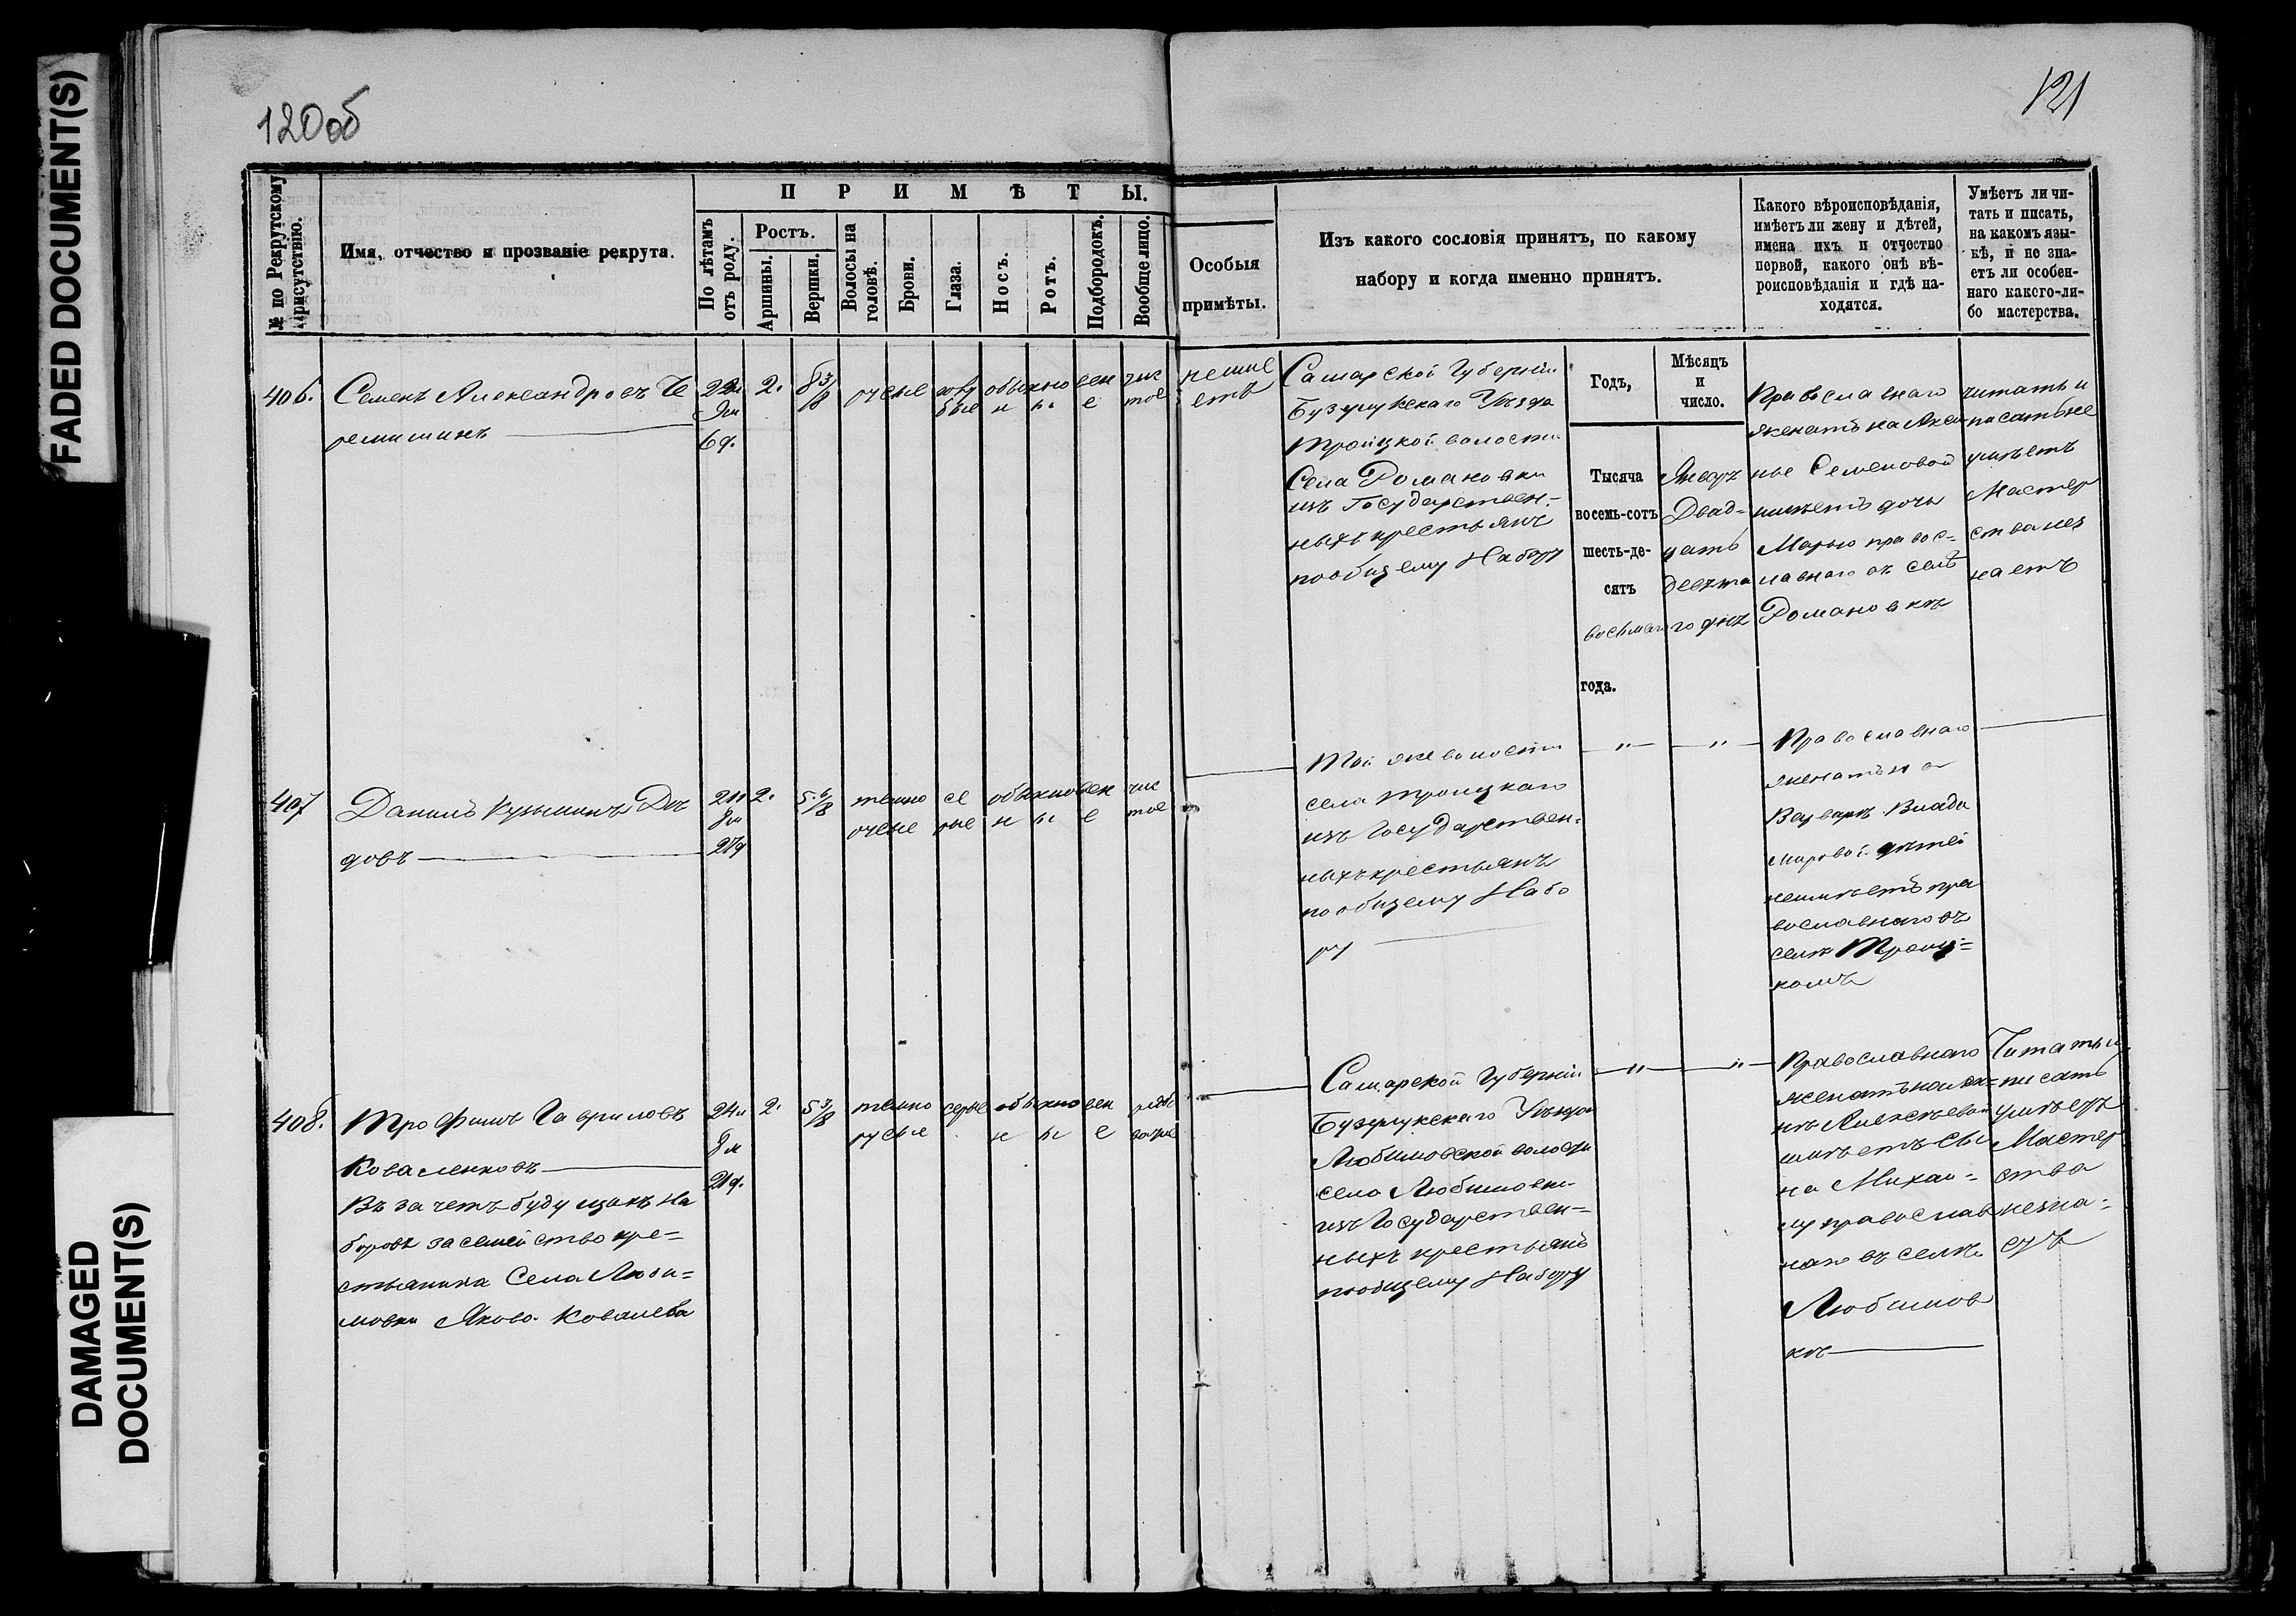 FADED DOCUMENT(S)
DAMAGED
DOCUMENT(S)
120об
121
№ по Рекрутскому
Присутствію.
Имя, отчество и прозваніе рекрута.
ПРИМѢТЫ.
По лѣтамъ
отъ роду.
Ростъ.
Аршины.
Вершки.
Волосы на
головѣ.
Брови.
Глаза.
Носъ.
Ротъ.
Подбородокъ.
Вообще лицо.
Особыя
примѣты.
Изъ какого сословія принятъ, по какому
набору и когда именно принятъ.
Какого вѣроисповѣданія,
имѣетъ ли жену и дѣтей,
имена ихъ и отчество
первой, какого онѣ вѣ-
роисповѣданія и гдѣ на-
ходятся.
Умѣетъ ли чи-
тать и писать,
на какомъ язы-
кѣ, и не зна-
етъ ли особен-
наго какого-ли-
бо мастерства.
406.
Семенъ Александровъ Че
ремишинъ
22л
9м
6д.
2.
8 3/8
русые
голу
бые
обыкновен
ные
чис
тое
неиме
етъ
Самарской Губерніи
Бузулукскаго Уѣзда
Троицкой волости
Села Романовки
изъ Государствен-
ныхъ крестьянъ
по общему Набору
Годъ,
Мѣсяцъ
и
число.
Тысяча
восемь-сотъ
шесть-де-
сятъ
восьмаго
года.
Январ
Двад-
цать
девята
го дня
Православнаго
женатъ на Акси
нье Семеновой
имѣетъ дочь
Марью правос-
лавнаго въ селѣ
Романовкѣ
читать и
писать не
умѣетъ
Мастер
ства нез
наетъ
407
Данилъ Кузьминъ Дѣ
довъ
21л
8м
27д
2.
темно
русые
се
рые
обыкновен
ные
чис
тое
Той же волости
села Троицкаго
изъ Государствен-
ныхъ крестьянъ
по общему Набо
ру
— „ — — „ —
Православнаго
женатъ на
Варварѣ Влади
мировой дѣтей
неимѣетъ пра
вославнаго въ
селѣ Троиц-
комъ
408.
Трофимъ Гавриловъ
Коваленковъ
Въ зачетъ будущихъ На
боровъ за семейство кре-
стьянина Села Люби-
мовки Якова Ковалева
24л
8м
21д.
2.
5 3/8
темно
русые
серые
обыкновен
ные
Самарской Губерніи
Бузулукскаго Уѣзда
Любимовской волости
село Любимовки
изъ Государствен-
ныхъ крестьянъ
по общему Набору
— „ — — „ —
Православнаго
Алексѣевой
имѣетъ сы
на Михаи-
лу православ
наго въ селѣ
Любимов
кѣ
Читать и
писать
умѣетъ
Мастер
ства
незна-
етъ